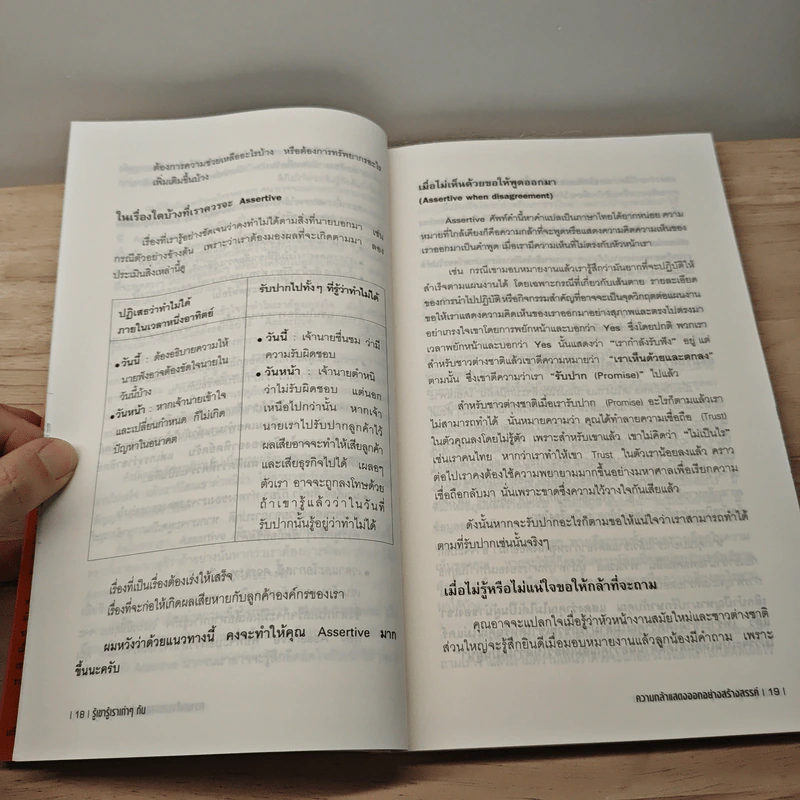 ต้องการความช่วยเหลืออะไรบ้าง หรือต้องการทรัพยากรอะไร
เพิ่มเติมขึ้นบ้าง
ในเรื่องใดบ้างที่เราควรจะ Assertive
เรื่องที่เรารู้อย่างชัดเจนว่าคงทำไม่ได้ตามสิ่งที่นายบอกมา เช่น
กรณีตัวอย่างข้างต้น เพราะว่าเราต้องมองผลที่จะเกิดตามมา ลอง
ประเมินสิ่งเหล่านี้ดู
ปฏิเสธว่าทำไม่ได้
ภายในเวลาหนึ่งอาทิตย์
• วันนี้ : ต้องอธิบายความให้
นายฟังอาจต้องขัดใจนายใน
วันนี้บ้าง
• วันหน้า : หากเจ้านายเข้าใจ
และเปลี่ยนกำหนด ก็ไม่เกิด
ปัญหาในอนาคต
รับปากไปทั้งๆ ที่รู้ว่าทำไม่ได้
• วันนี้ : เจ้านายชื่นชม ว่ามี
ความรับผิดชอบ
• วันหน้า : เจ้านายตำหนิ
ว่าไม่รับผิดชอบ แต่นอก
เหนือไปกว่านั้น หากเจ้า
นายเราไปรับปากลูกค้าไว้
ผลเสียอาจจะทำให้เสียลูกค้า
และเสียธุรกิจไปได้ เผลอๆ
ตัวเรา อาจจะถูกลงโทษด้วย
ถ้าเขารู้แล้วว่าในวันที่
รับปากนั้นรู้อยู่ว่าทำไม่ได้
เรื่องที่เป็นเรื่องต้องเร่งให้เสร็จ
เรื่องที่จะก่อให้เกิดผลเสียหายกับลูกค้าองค์กรของเรา
ผมหวังว่าด้วยแนวทางนี้ คงจะทำให้คุณ Assertive มาก
ขึ้นนะครับ
| 18 | รู้เขารู้เราเก่าๆ กัน
เมื่อไม่เห็นด้วยขอให้พูดออกมา
(Assertive when disagreement)
Assertive ศัพท์คำนี้หาคำแปลเป็นภาษาไทยได้ยากหน่อย ความ
หมายที่ใกล้เคียงก็คือความกล้าที่จะพูดหรือแสดงความคิดความเห็นของ
เราออกมาเป็นคำพูด เมื่อเรามีความเห็นที่ไม่ตรงกับหัวหน้าเรา
เช่น กรณีเขามอบหมายงานแล้วเรารู้สึกว่ามันยากที่จะปฏิบัติให้
สำเร็จตามแผนงานได้ โดยเฉพาะกรณีที่เกี่ยวกับเส้นตาย รายละเอียด
ของการนำไปปฏิบัติ หรือกิจกรรมสำคัญที่อาจจะเป็นจุดวิกฤตต่อแผนงาน
ขอให้เราแสดงความคิดเห็นของเราออกมาอย่างสุภาพและตรงไปตรงมา
อย่าเกรงใจเขาโดยการพยักหน้าและบอกว่า Yes ซึ่งโดยปกติ พวกเรา
เวลาพยักหน้าและบอกว่า Yes นั้นแสดงว่า "เรากำลังรับฟัง" อยู่ แต่
สำหรับชาวต่างชาติแล้วเขาตีความหมายว่า "เราเห็นด้วยและตกลง"
ตามนั้น ซึ่งเขาตีความว่าเรา "รับปาก (Promise)" ไปแล้ว
สำหรับชาวต่างชาติเมื่อเรารับปาก (Promise) อะไรก็ตามแล้วเรา
ไม่สามารถทำได้ นั่นหมายความว่า คุณได้ทำลายความเชื่อถือ (Trust)
ในตัวคุณลงโดยไม่รู้ตัว เพราะสำหรับเขาแล้ว เขาไม่คิดว่า "ไม่เป็นไร"
เช่นเราคนไทย หากว่าเราทำให้เขา Trust ในตัวเราน้อยลงแล้ว คราว
ต่อไปเราคงต้องใช้ความพยายามมากขึ้นอย่างมหาศาลเพื่อเรียกความ
เชื่อถือกลับมา นั่นเพราะขาดซึ่งความไว้วางใจกันเสียแล้ว
ดังนั้นหากจะรับปากอะไรก็ตามขอให้แน่ใจว่าเราสามารถทำได้
ตามที่รับปากเช่นนั้นจริงๆ
เมื่อไม่รู้หรือไม่แน่ใจขอให้กล้าที่จะถาม
คุณอาจจะแปลกใจเมื่อรู้ว่าหัวหน้างานสมัยใหม่และชาวต่างชาติ
ส่วนใหญ่จะรู้สึกยินดีเมื่อมอบหมายงานแล้วลูกน้องมีคำถาม เพราะ
ความกล้าแสดงออกอย่างสร้างสรรค์ | 19 |